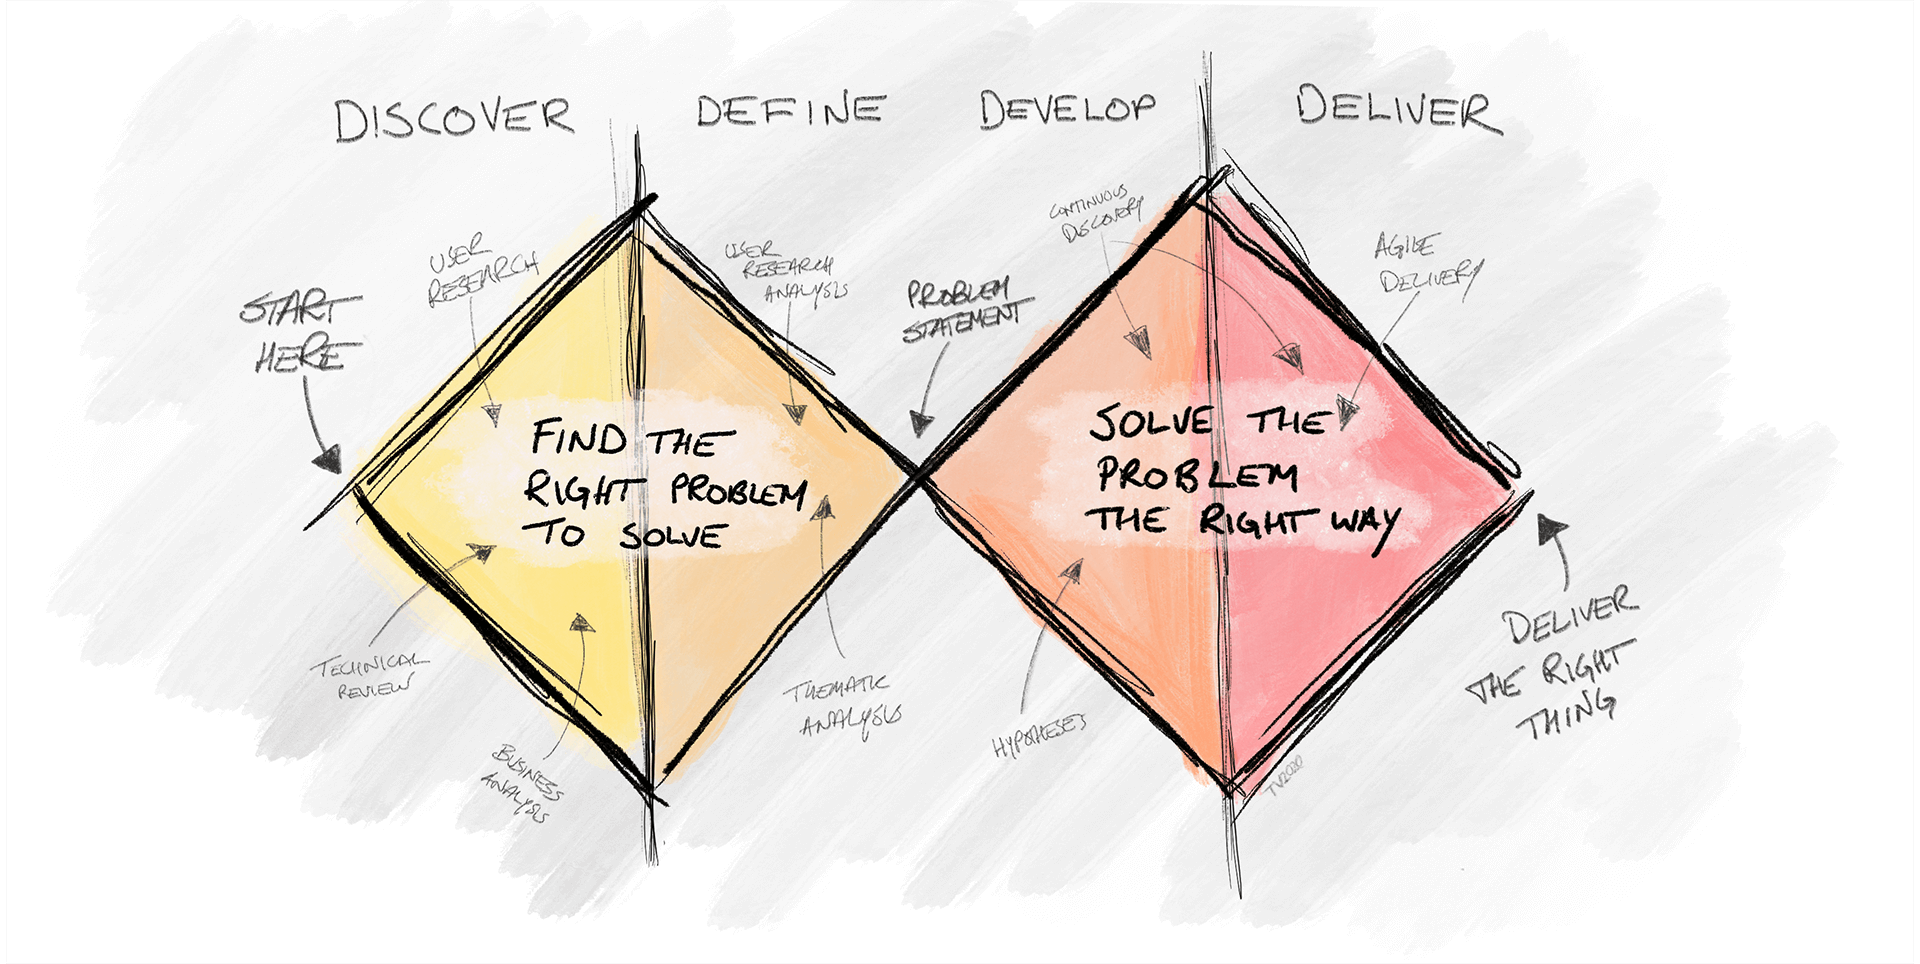 DISCOVER
DEFINE
DEVELOP
DELIVER
START
HERE
USER
RESEARCH
USER
RESEARCH
ANALYSIS
PROBLEM
STATEMENT
CONTINUOUS
DISCOVERY
AGILE
DELIVERY
FIND THE
RIGHT PROBLEM
TO SOLVE
SOLVE THE
PROBLEM
THE RIGHT WAY
TECHNICAL
REVIEW
BUSINESS
ANALYSIS
THEMATIC
ANALYSIS
HYPOTHESES
DELIVER
THE RIGHT
THING
TV2020